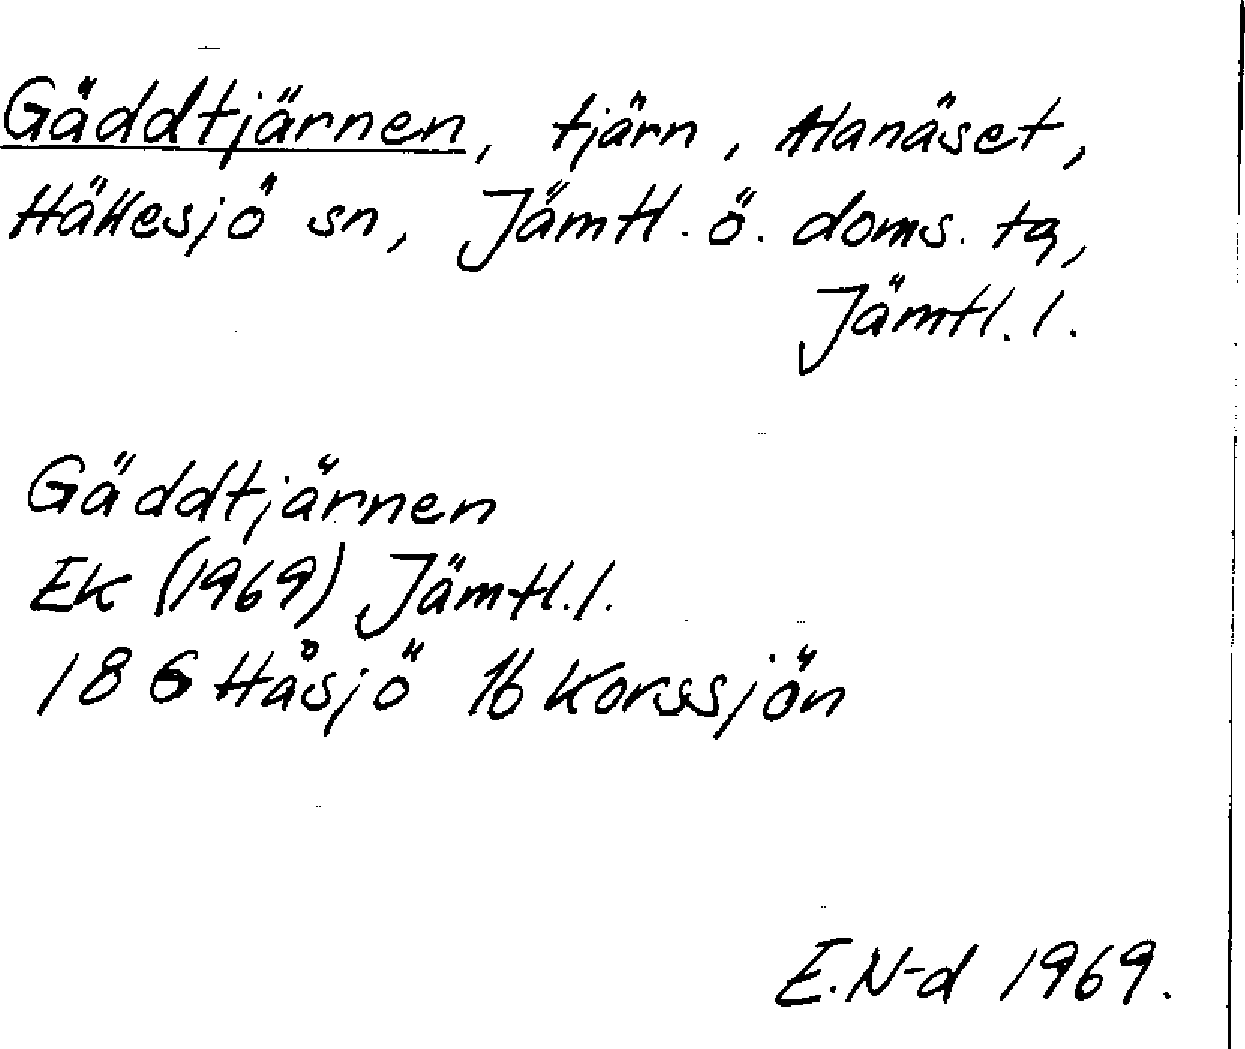 Gäddtjärnen, tjärn, Alanäset,
Hällesjö sn, Jämtl. ö. doms. tg,
Jämtl. l.
Gäddtjärnen
Ek (1969) Jämtl. l.
18 G Håsjö 1b Korssjön
E. N-d 1969.